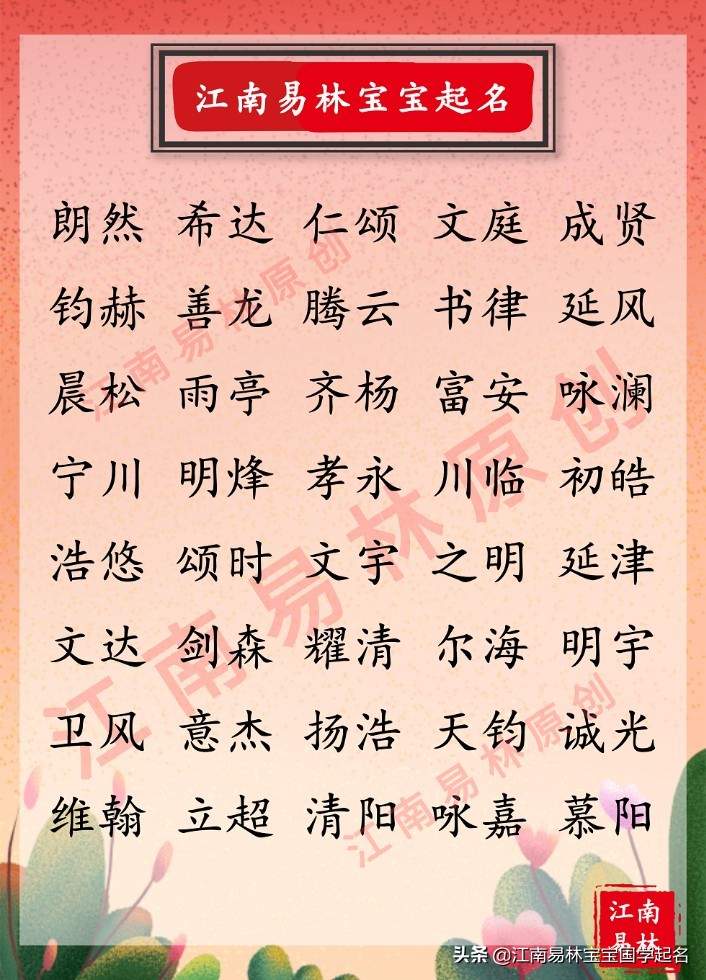 江南易林宝宝起名
朗然 希达 仁颂 文庭 成贤
钧赫 善龙 腾云 书律 延风
晨松 雨亭 齐杨 富安 咏澜
宁川 明烽 孝永 川临 初皓
浩悠 颂时 文宇 之明 延津
文达 剑森 耀清 尔海 明宇
卫风 意杰 扬浩 天钧 诚光
维翰 立超 清阳 咏嘉 慕阳
江南易林原创
江南易林原创
江南易林原创
江南
易林
头条 @江南易林宝宝国学起名